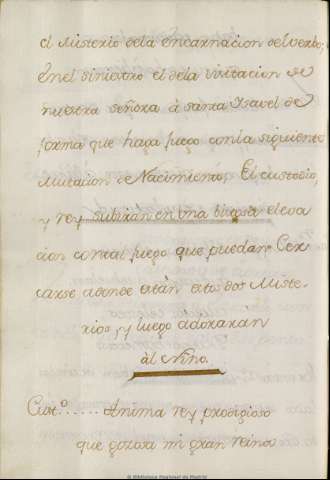 el Misterio dela Encarnacion del verbo;
En el siniestro el dela Visitacion de
nuestra Señora à santa Isavel de
forma que haga juego conla siguiente
Mutacion de Nacimiento; El custodio,
y rey subiràn en una vistosa eleva
cion con tal juego que puedan Cer
carse adonde estàn estos dos Miste-
rios, y luego adoraràn
àl Niño.
Custº..... Anima rey prodigioso
que gozosa mi gran Reino
© Biblioteca Nacional de Madrid